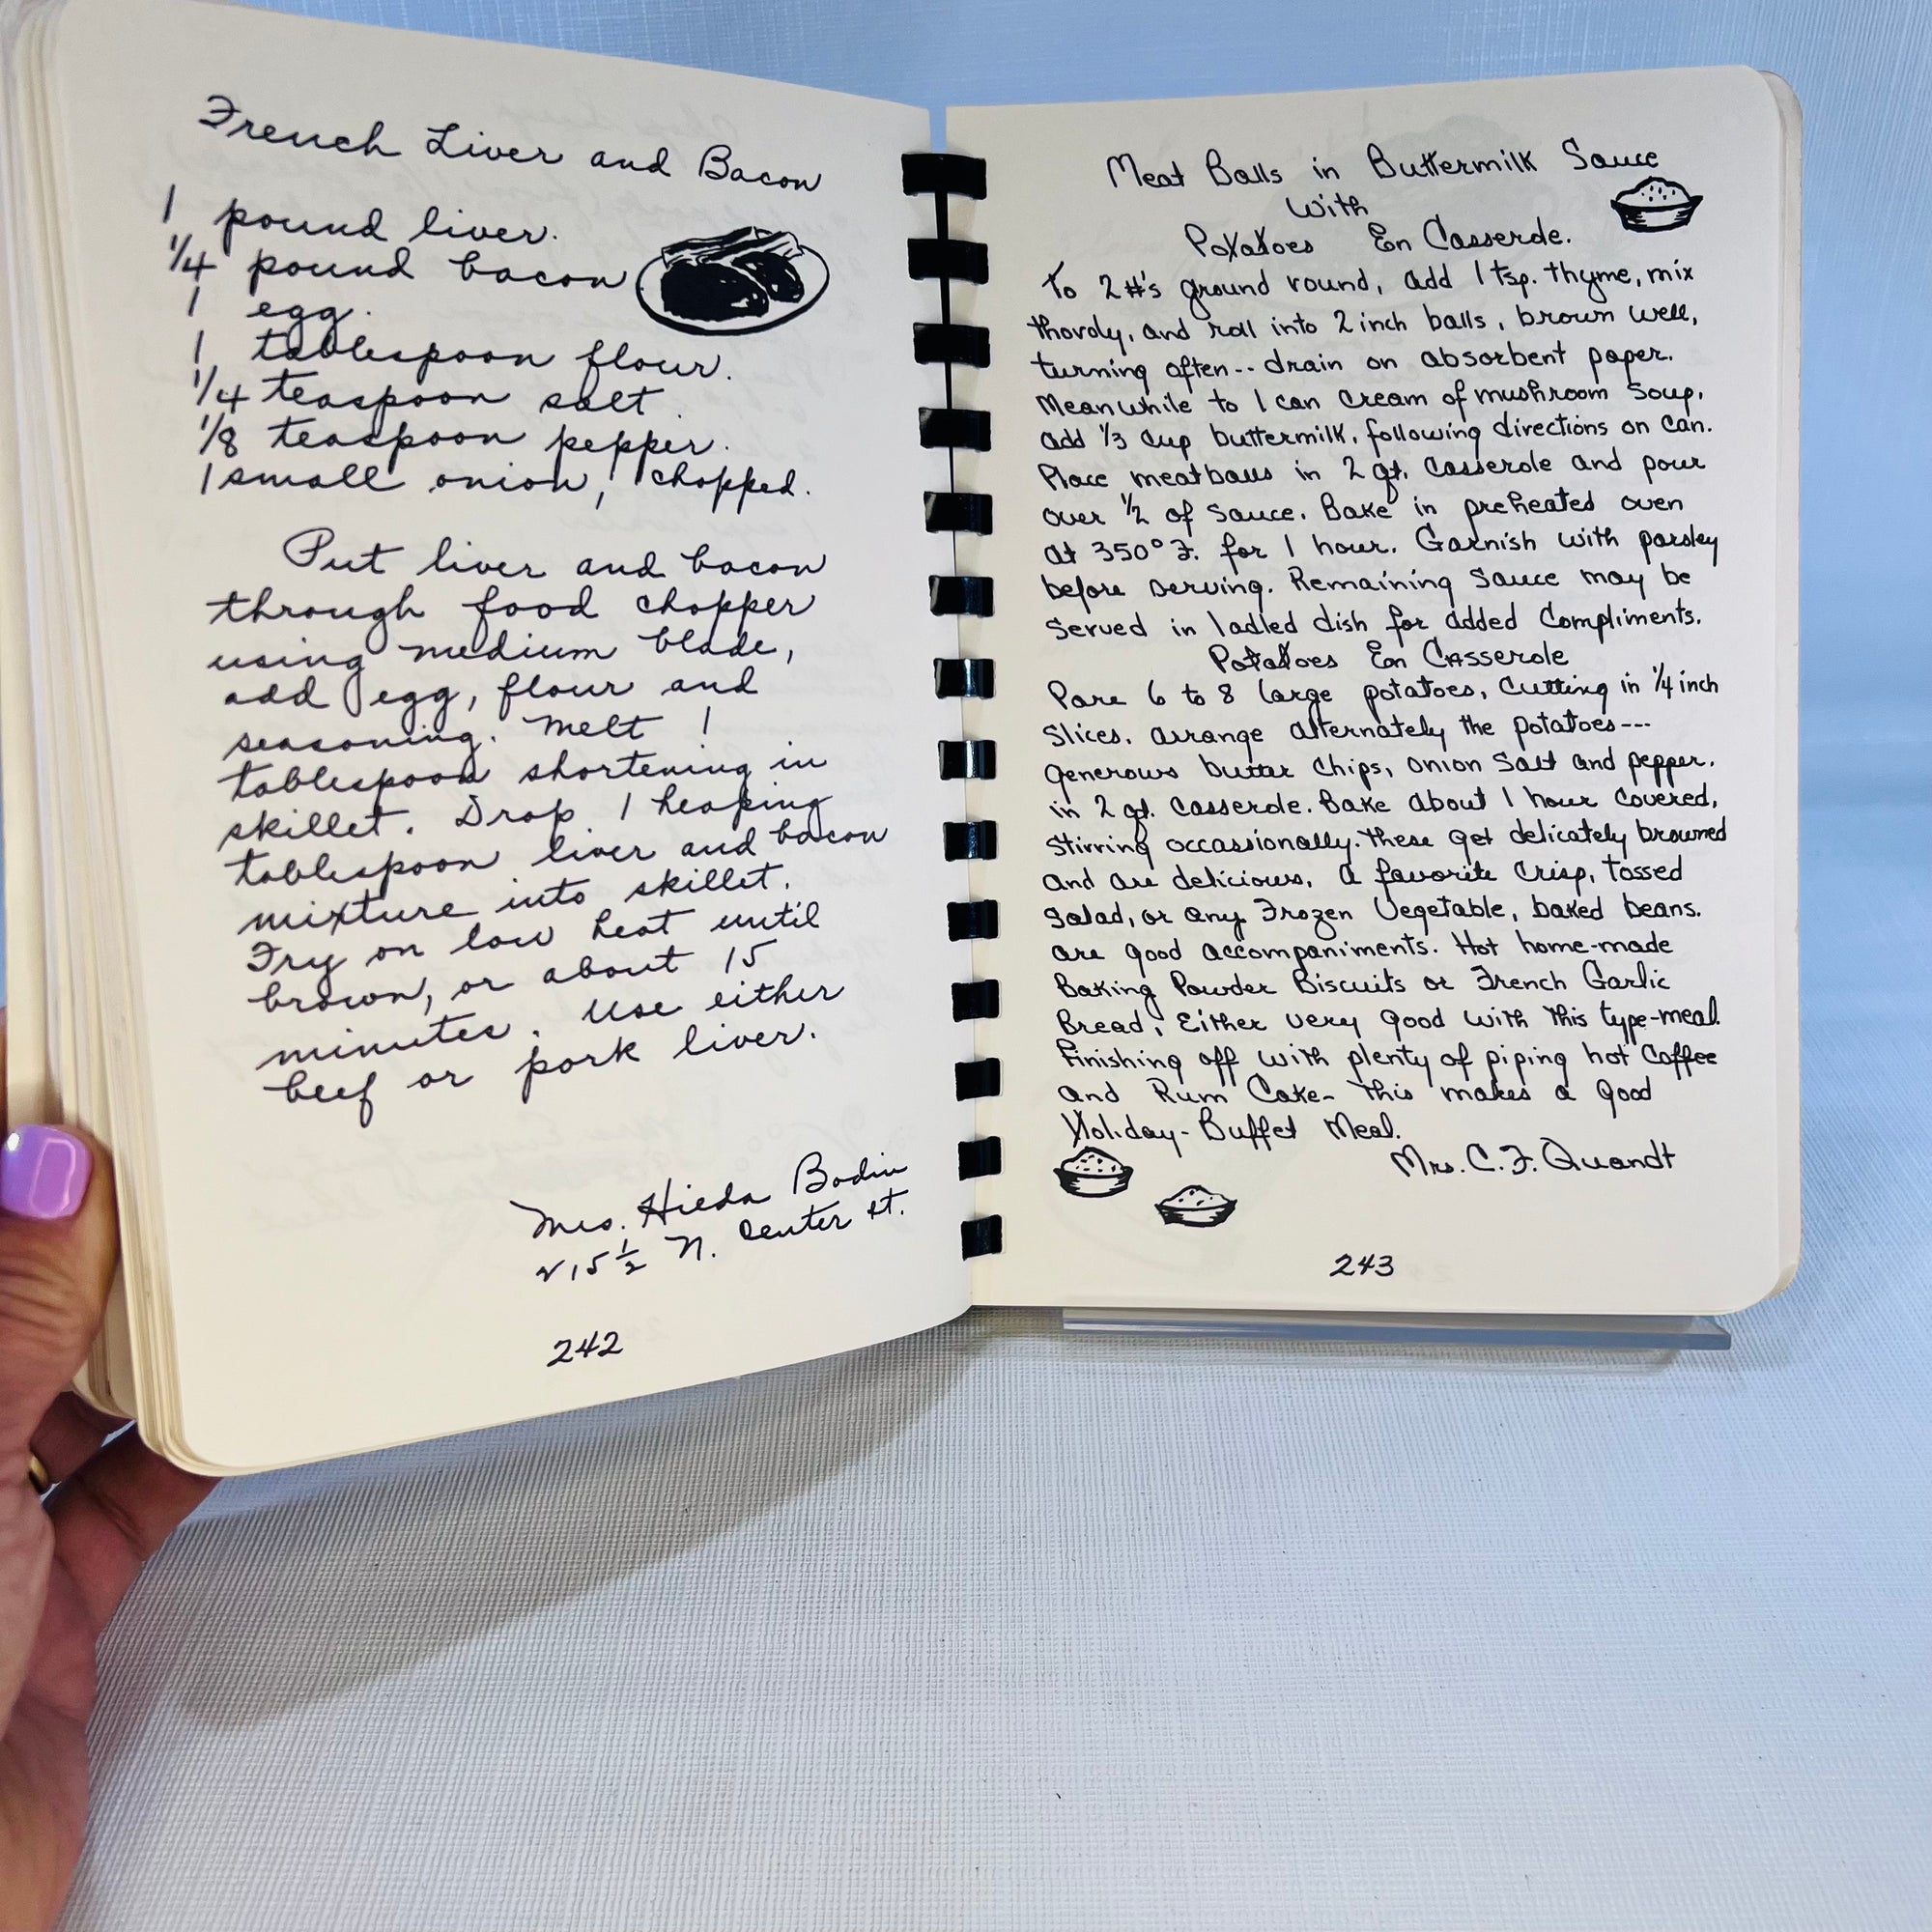 French Liver and Bacon
1 pound liver.
1/4 pound bacon
1 egg.
1 tablespoon flour.
1/4 teaspoon salt.
1/8 teaspoon pepper.
1 small onion, chopped.
Put liver and bacon
through food chopper
using medium blade,
add egg, flour and
seasoning. Melt 1
tablespoon shortening in
skillet. Drop 1 heaping
tablespoon liver and bacon
mixture into skillet.
Fry on low heat until
brown, or about 15
minutes. Use either
beef or pork liver.
Mrs. Hilda Bodin
215 1/2 N. Center St.
242
Meat Balls in Buttermilk Sauce
With
Potatoes En Casserole.
To 2 #'s ground round, add 1 tsp. thyme, mix
thoroly, and roll into 2 inch balls, brown well,
turning often-- drain on absorbent paper.
Meanwhile to 1 can cream of mushroom soup,
add 1/3 cup buttermilk, following directions on can.
Place meatballs in 2 qt. casserole and pour
over 1/2 of sauce. Bake in preheated oven
at 350° F. for 1 hour. Garnish with parsley
before serving. Remaining sauce may be
served in ladled dish for added compliments.
Potatoes En Casserole
Pare 6 to 8 large potatoes, cutting in 1/4 inch
slices. arrange alternately the potatoes---
generous butter chips, onion salt and pepper.
in 2 qt. casserole. Bake about 1 hour covered,
stirring occassionally. These get delicately browned
and are delicious, a favorite crisp, tossed
salad, or any Frozen Vegetable, baked beans.
are good accompaniments. Hot home-made
Baking Powder Biscuits or French Garlic
Bread, Either very good with this type-meal.
Finishing off with plenty of piping hot Coffee
and Rum Cake- this makes a good
Holiday-Buffet Meal.
Mrs. C. F. Quandt
243